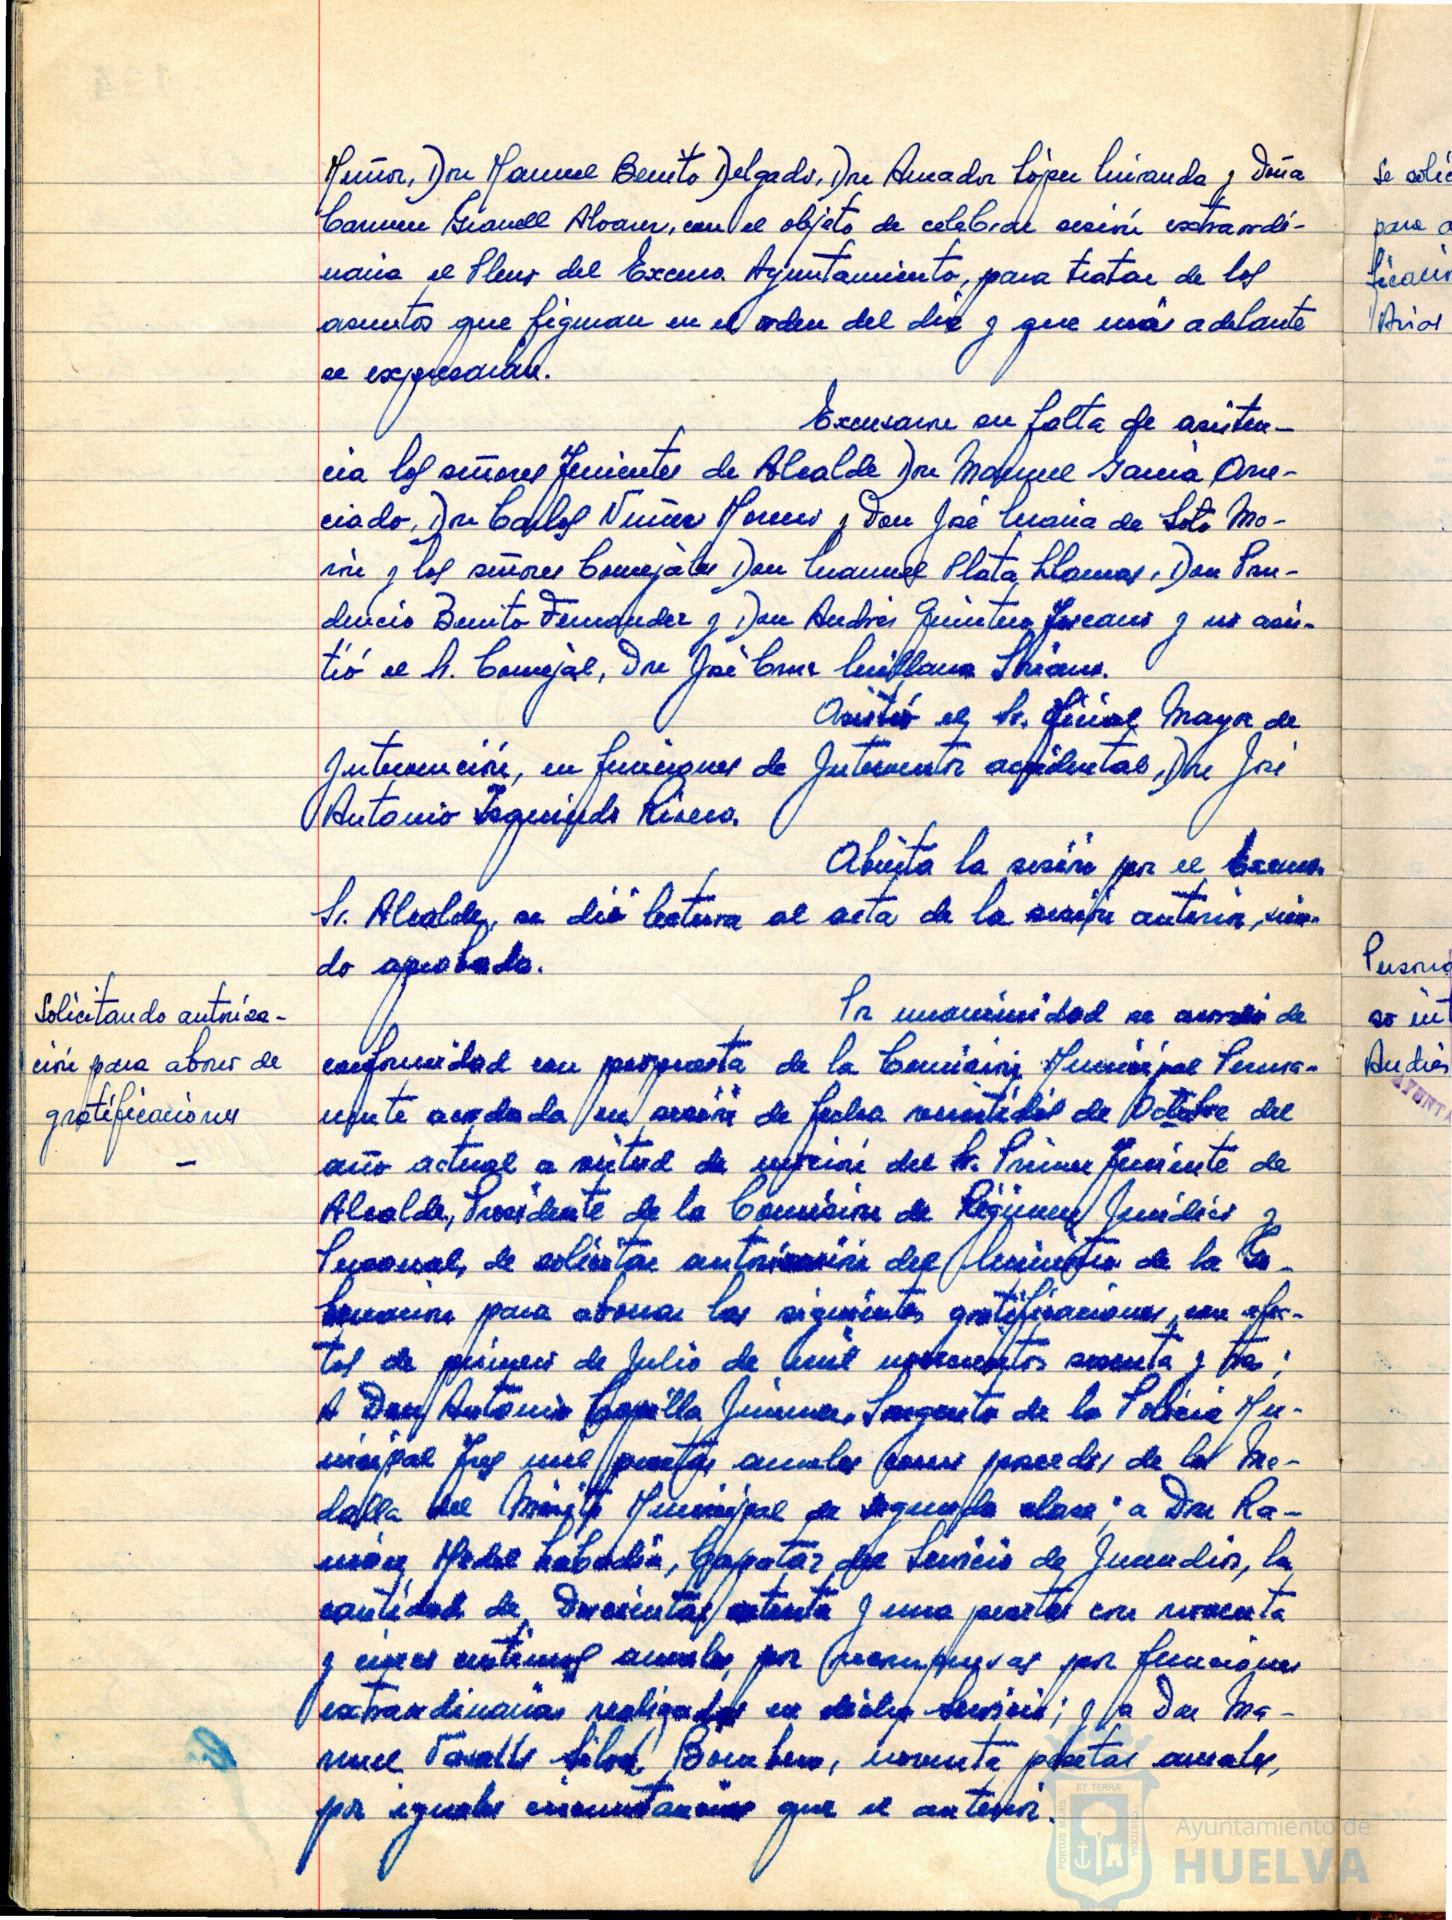 Muñoz, Don Manuel Benito Delgado, Don Amador López Miranda y Doña
Carmen Granell Alvarez, con el objeto de celebrar sesión extraordi-
naria el Pleno del Excmo. Ayuntamiento, para tratar de los
asuntos que figuran en el orden del día y que más adelante
se expresarán.
Excusaron su falta de asisten-
cia los señores Tenientes de Alcalde Don Manuel García One-
ciado, Don Carlos Núñez Moreno y Don José María de Soto Mo-
rón y los señores Concejales Don Manuel Plata Llamas, Don Pru-
dencio Benito Fernandez y Don Andrés Quintero Toscano y no asis-
tió el Sr. Concejal, Don José Cruz Millana Soriano.
Asistió el Sr. Oficial Mayor de
Intervención, en funciones de Interventor accidental, Don José
Antonio Izquierdo Rivero.
Abierta la sesión por el Excmo.
Sr. Alcalde, se dió lectura al acta de la sesión anterior, sien-
do aprobada.
Solicitando autoriza-
ción para abono de
gratificaciones
Por unanimidad se acordó de
conformidad con propuesta de la Comisión Municipal Perma-
nente acordada en sesión de fecha veintidós de Octubre del
año actual a virtud de moción del Sr. Primer Teniente de
Alcalde, Presidente de la Comisión de Régimen Jurídico y
Personal, de solicitar autorización del Ministro de la Go-
bernación para abonar las siguientes gratificaciones, con efec-
tos de primero de Julio de mil novecientos sesenta y tres:
A Don Antonio Capilla Jimenez, Sargento de la Policía Mu-
nicipal Tres mil pesetas anuales como poseedor de la Me-
dalla del Mérito Municipal de segunda clase; a Don Ra-
món Model Labadía, Capataz del Servicio de Incendios, la
cantidad de Doscientas setenta y una pesetas con noventa
y cinco centimos anuales, por recompensas por funciones
extraordinarias realizadas en dicho Servicio; y a Don Ma-
nuel Bombero, noventa pesetas anuales,
por iguales circunstancias que el anterior.
Se solic
para a
ficació
Arias
Person
so int
Andrés
AYUNTA
ET TERRAE
PORTUS MARIS
CUSTODIA
Ayuntamiento de
HUELVA